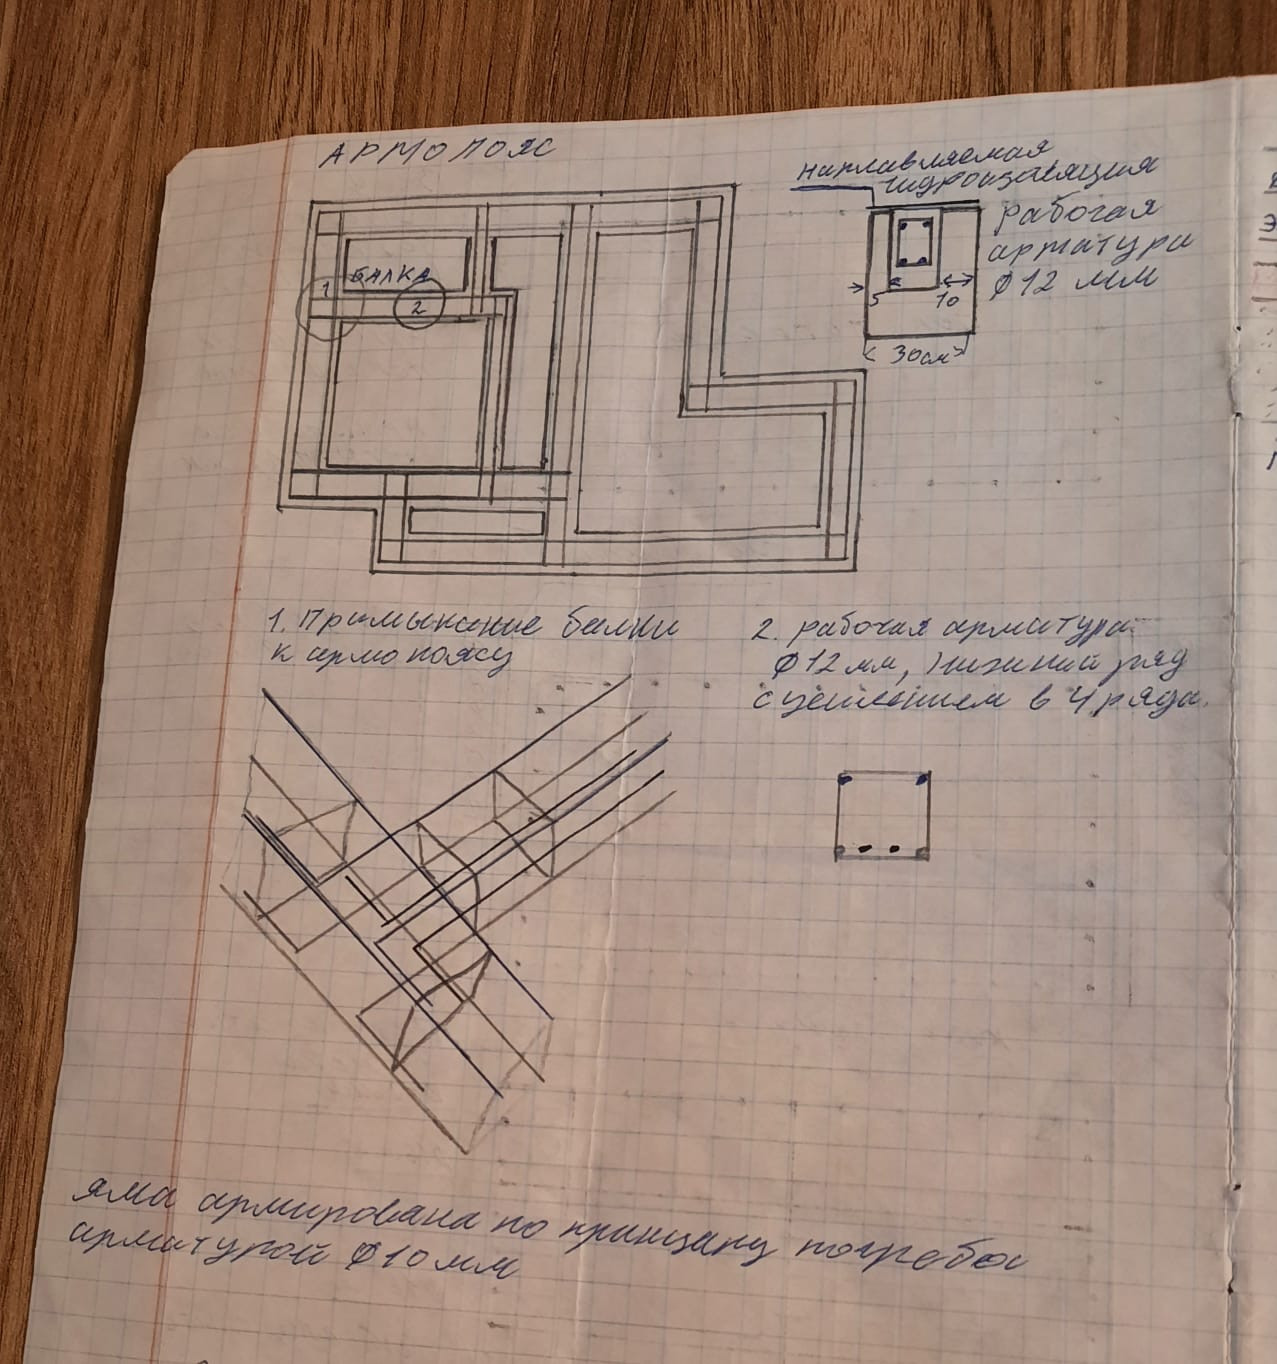 АРМОПОЯС
наплавляемая
гидроизоляция
рабочая
арматура
φ12 мм
5
10
30см
БАЛКА
1
2
1. Примыкание балки
к армопоясу
2. рабочая арматура
φ12мм, нижний ряд
с усилением в 4 ряда.
яма армирована по принципу погреба
арматурой φ10мм